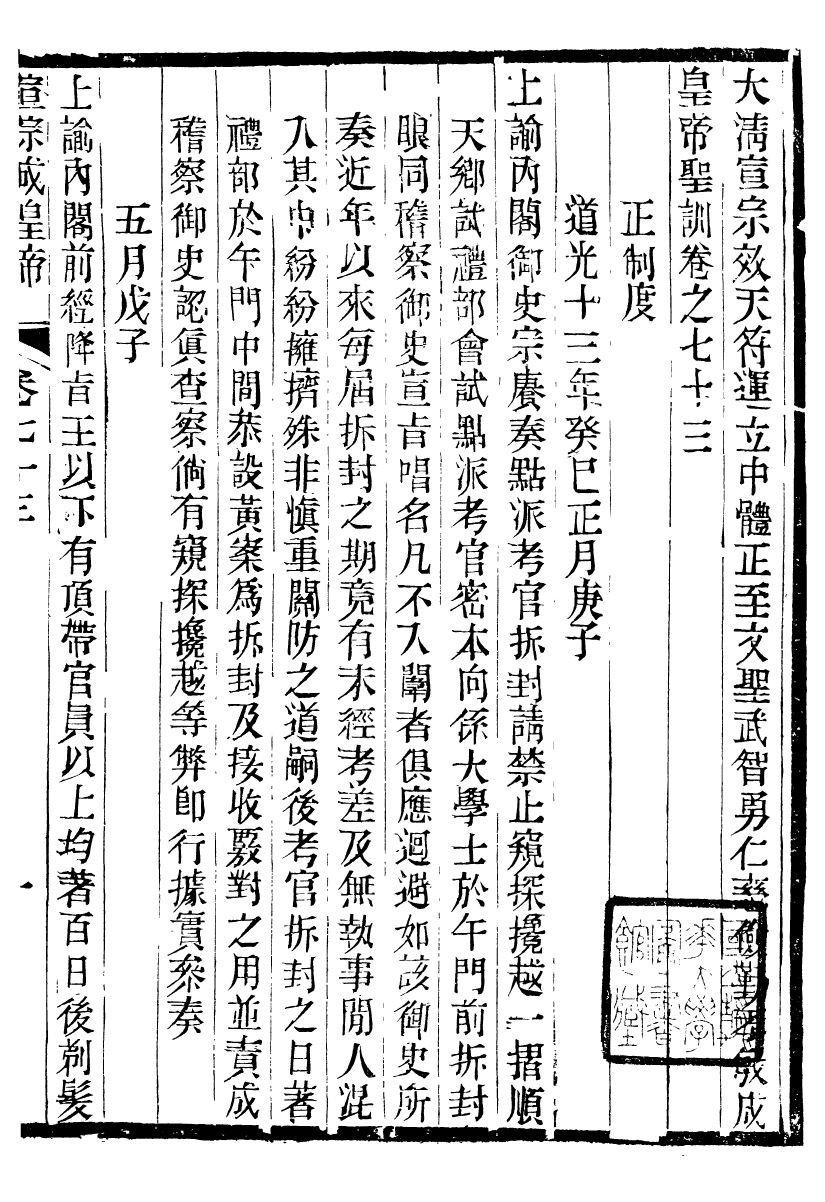 大清宣宗效天符運立中體正至文聖武智勇仁慈儉勤孝敏成
皇帝聖訓卷之七十三
正制度
道光十三年癸巳正月庚子
上諭內閣御史宗賡奏點派考官拆封請禁止窺探攙越一摺順
天鄉試禮部會試點派考官密本向係大學士於午門前拆封
眼同稽察御史宣旨唱名凡不入闈者俱應迴避如該御史所
奏近年以來每屆拆封之期竟有未經考差及無執事閒人混
入其中紛紛擁擠殊非慎重關防之道嗣後考官拆封之日著
禮部於午門中間恭設黃案為拆封及接收覈對之用並責成
稽察御史認真查察倘有窺探攙越等弊即行據實參奏
五月戊子
上諭內閣前經降旨王以下有頂帶官員以上均著百日後剃髮
宣宗成皇帝 卷七十三 一